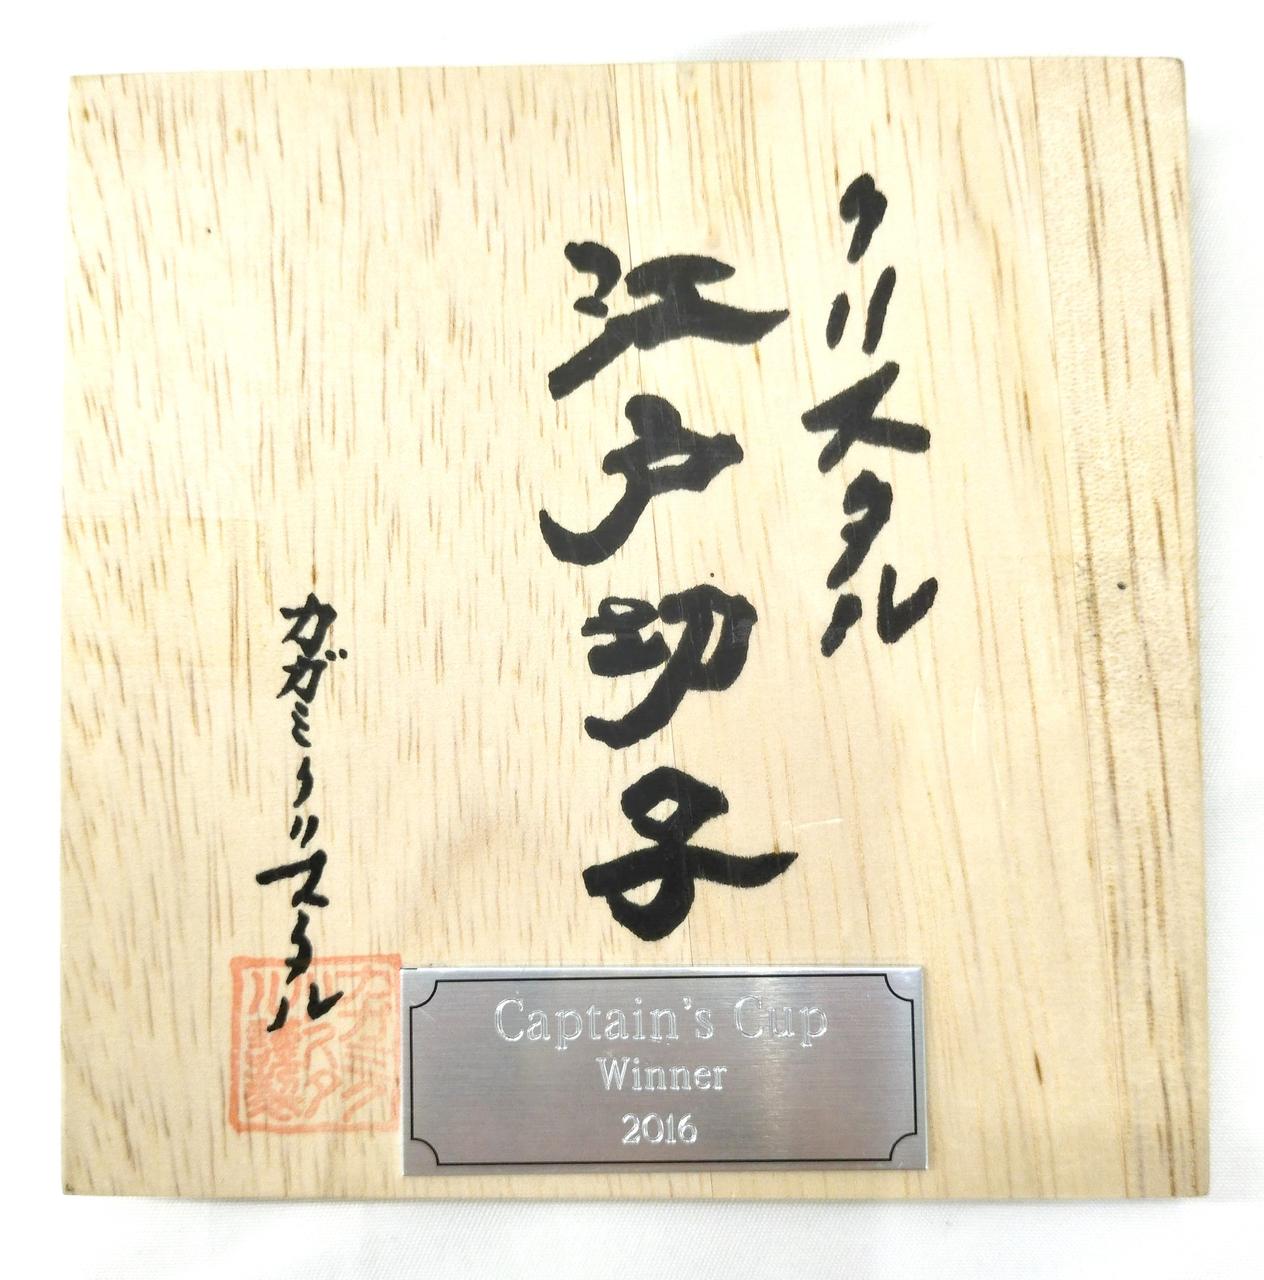 クリスタル
江戸切子
カガミクリスタル
Captain's Cup
Winner
2016